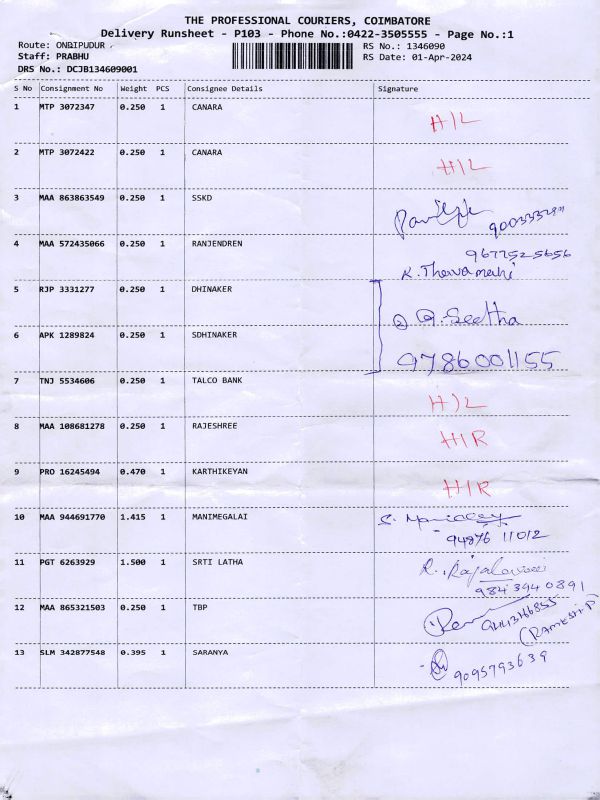 THE PROFESSIONAL COURIERS, COIMBATORE
Delivery Runsheet - P103 - Phone No.:0422-3505555 - Page No.:1
Route: ONDIPUDUR RS No.: 1346090
Staff: PRABHU RS Date: 01-Apr-2024
DRS No.: DCJB134609001
S No Consignment No Weight PCS Consignee Details Signature
1 MTP 3072347 0.250 1 CANARA H/L
2 MTP 3072422 0.250 1 CANARA H/L
3 MAA 863863549 0.250 1 SSKD
4 MAA 572435066 0.250 1 RANJENDREN 9677525656
K. Thevamani
5 RJP 3331277 0.250 1 DHINAKER
G. Seetha
6 APK 1289824 0.250 1 SDHINAKER
9786001155
7 TNJ 5534606 0.250 1 TALCO BANK H/L
8 MAA 108681278 0.250 1 RAJESHREE H/R
9 PRO 16245494 0.470 1 KARTHIKEYAN H/R
10 MAA 944691770 1.415 1 MANIMEGALAI
94876 11012
11 PGT 6263929 1.500 1 SRTI LATHA
9843940891
12 MAA 865321503 0.250 1 TBP
(RAMESH.P)
13 SLM 342877548 0.395 1 SARANYA
9095793639